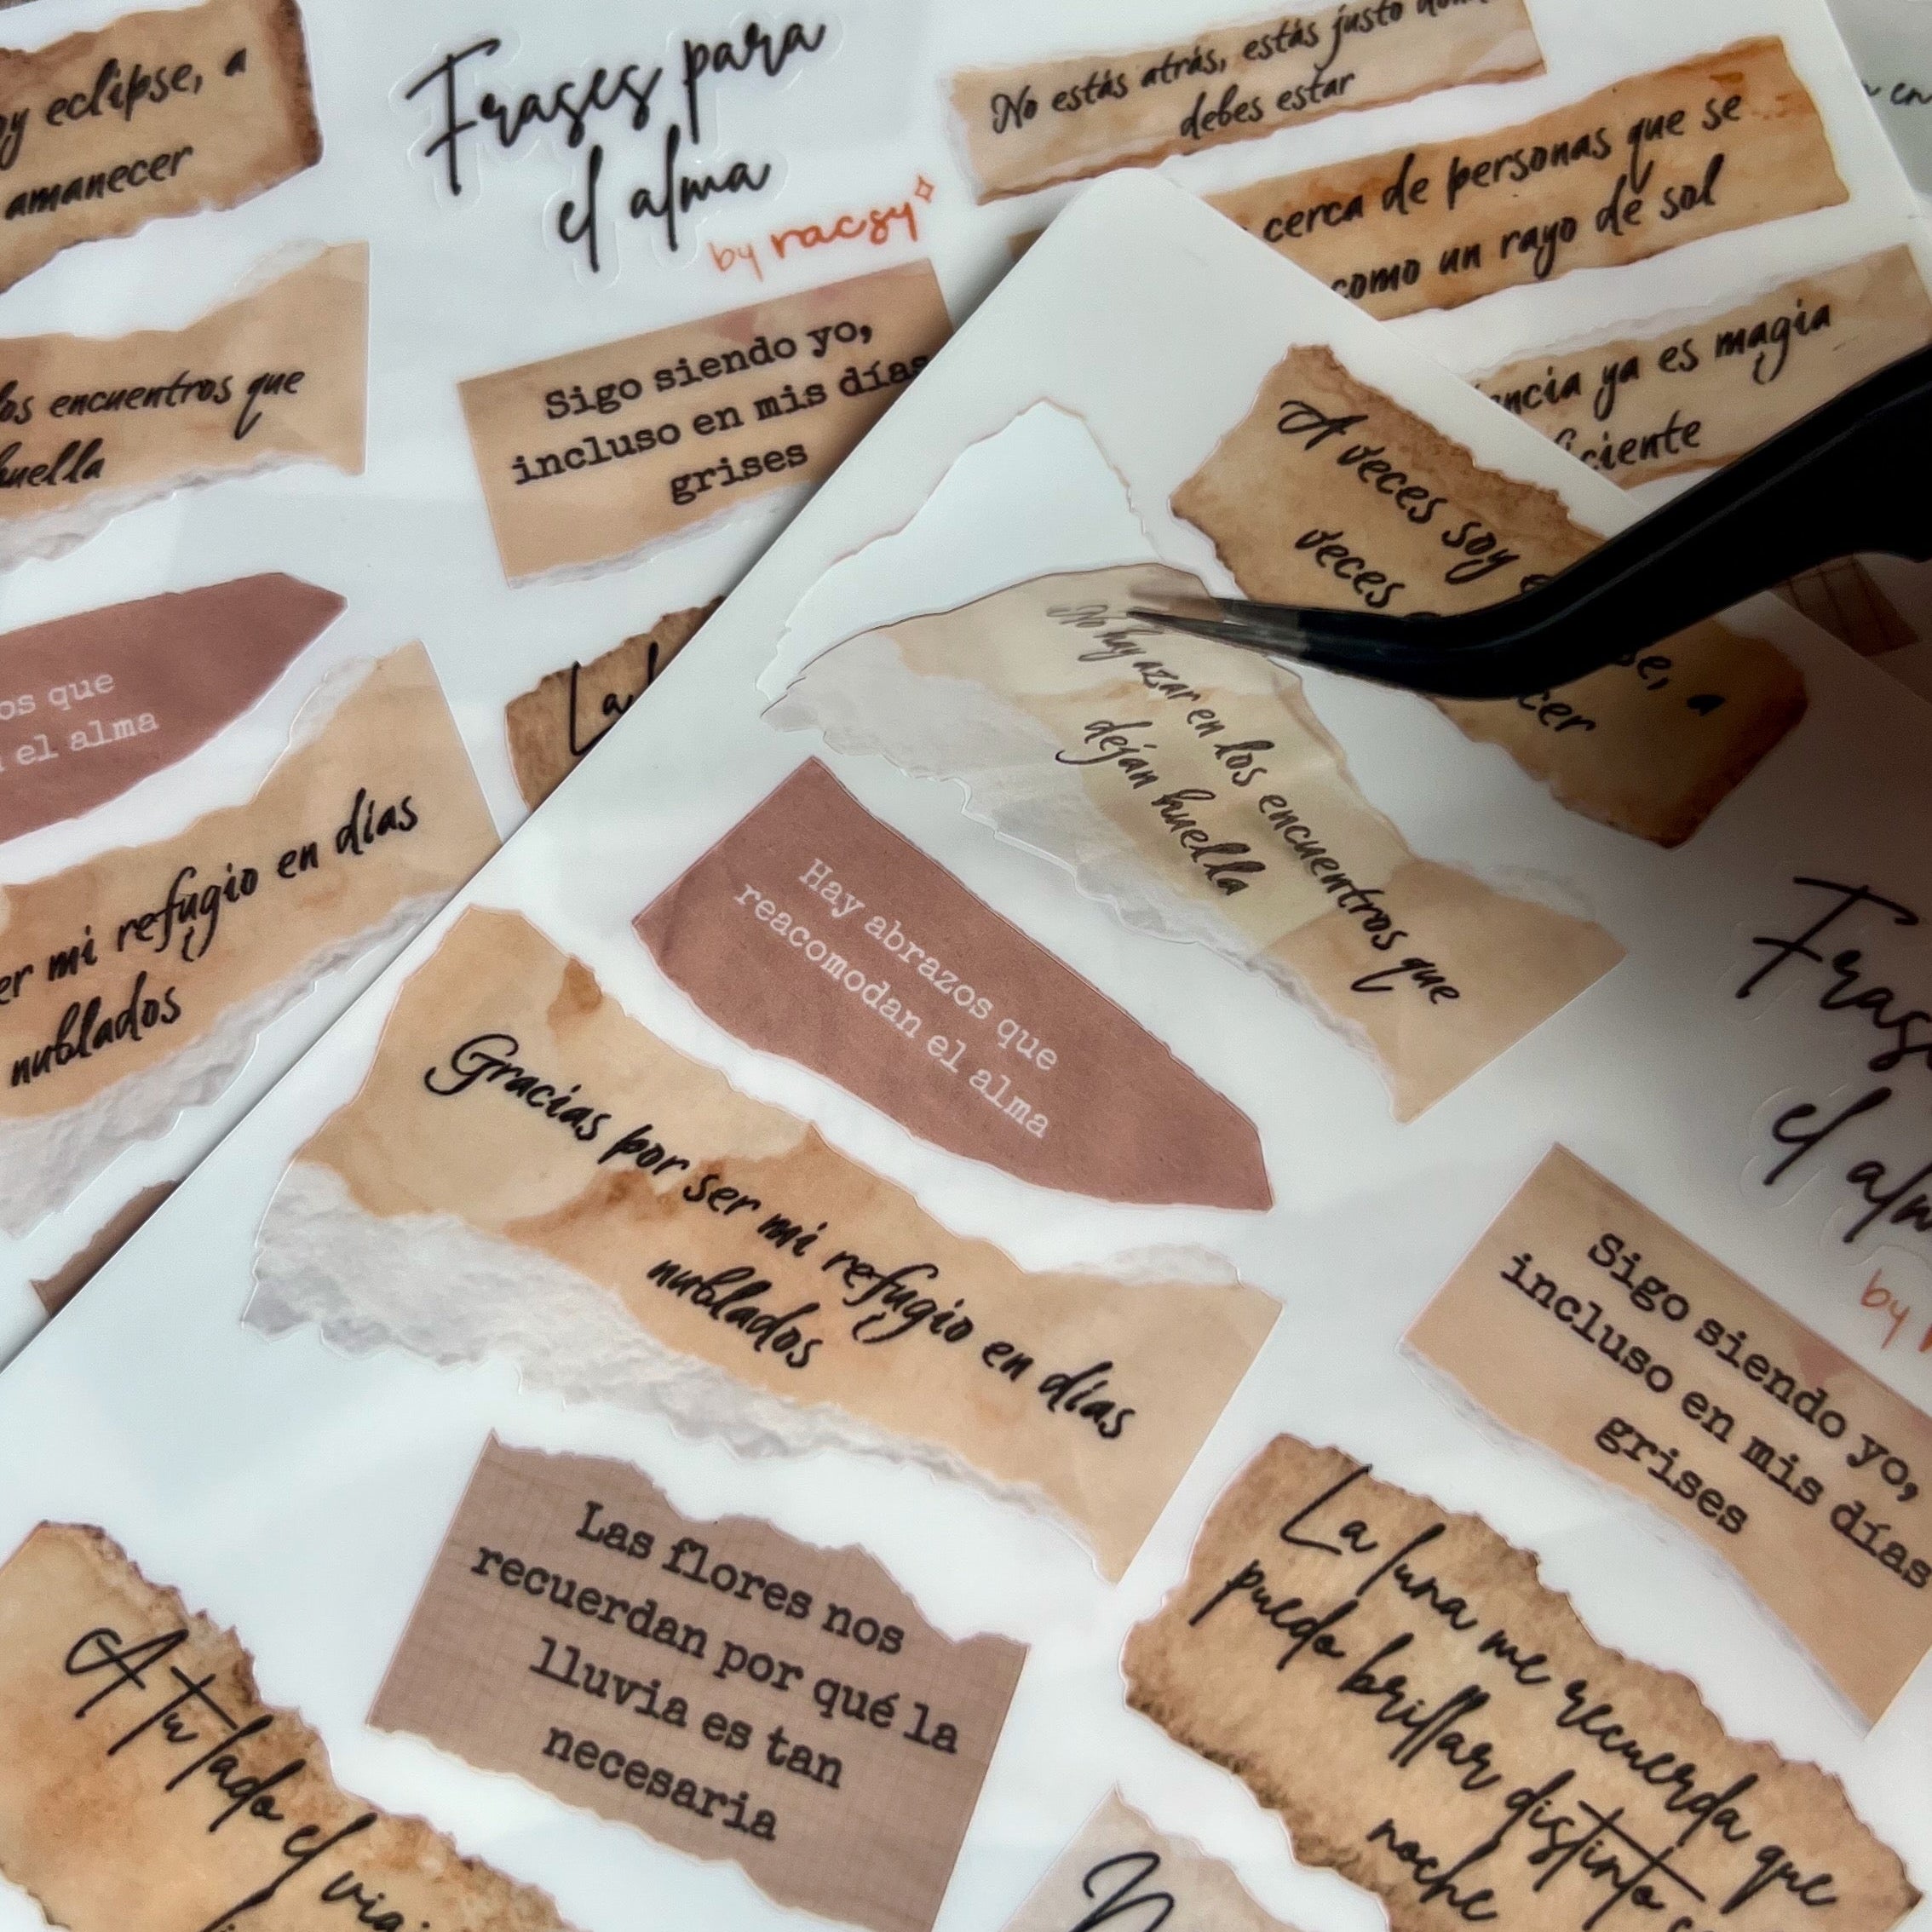 oy eclipse, a
amanecer
Frases para
el alma
by racsy
No estás atrás, estás justo
debes estar
cerca de personas que se
como un rayo de sol
ya es magia
los encuentros que
huella
Sigo siendo yo,
incluso en mis días
grises
que
el alma
La
mi refugio en días
nublados
A veces soy
veces
a
No hay azar en los encuentros que
dejan huella
Hay abrazos que
reacomodan el alma
Gracias por ser mi refugio en días
nublados
el
by
Sigo siendo yo,
incluso en mis días
grises
Las flores nos
recuerdan por qué la
lluvia es tan
necesaria
La luna me recuerda que
puedo brillar distinto
noche
A tu lado el